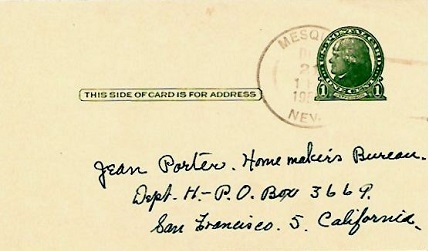 MESQU
21
1
19
NEV
U.S. POSTAL CARD
1 1
ONE CENT
THIS SIDE OF CARD IS FOR ADDRESS
Jean Porter. Homemakers Bureau.
Dept. H-P.O. Box 3669.
San Francisco. 5. California.